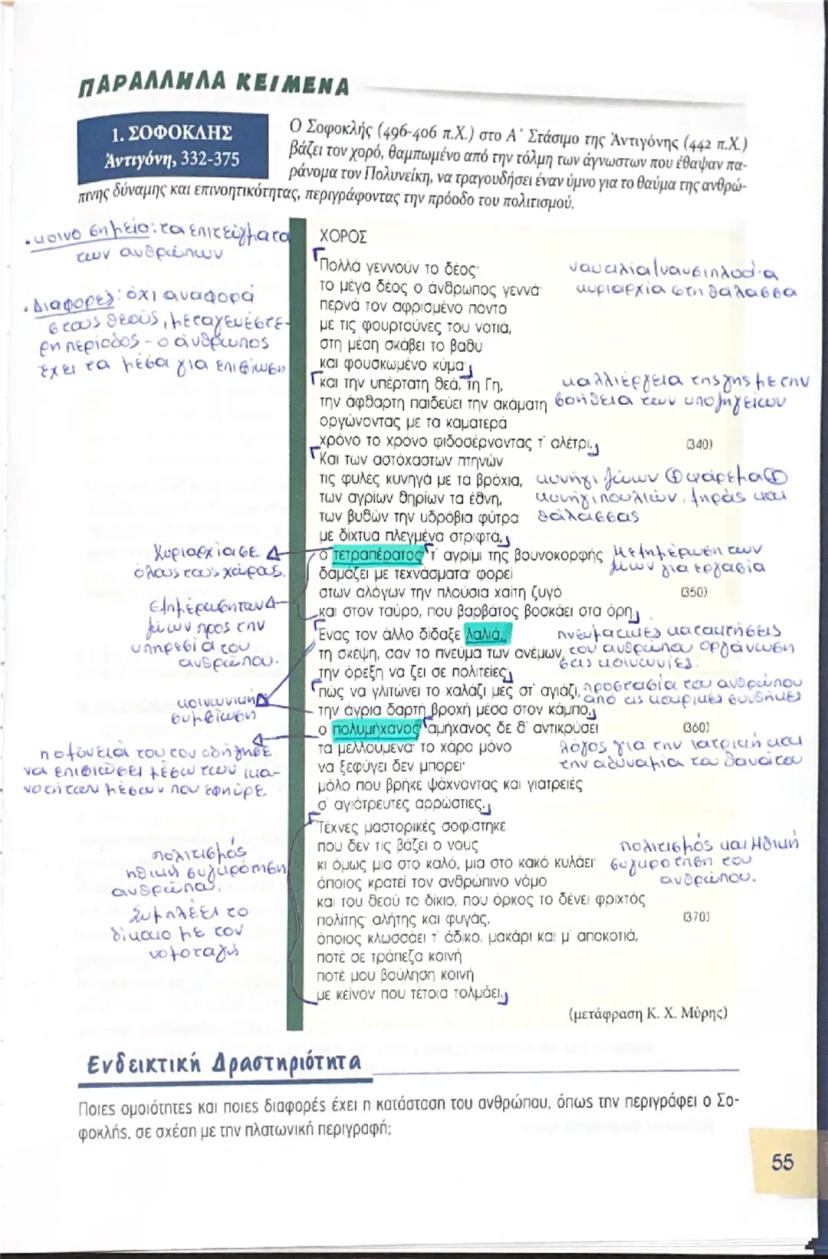 ΠΑΡΑΛΛΗΛΑ ΚΕΙΜΕΝΑ
1. ΣΟΦΟΚΛΗΣ
Ἀντιγόνη, 332-375
Ο Σοφοκλής (496-406 π.Χ.) στο Α΄ Στάσιμο της Ἀντιγόνης (442 π.Χ.)
βάζει τον χορό, θαμπωμένο από την τόλμη των άγνωστων που έθαψαν πα-
ράνομα τον Πολυνείκη, να τραγουδήσει έναν ύμνο για το θαύμα της ανθρώ-
πινης δύναμης και επινοητικότητας, περιγράφοντας την πρόοδο του πολιτισμού.
• κοινό σημείο: τα επιτεύγματα
των ανθρώπων
• Διαφορές: όχι αναφορά
στους θεούς, μεταγενέστε-
ρη περίοδος - ο άνθρωπος
έχει τα μέσα για επιβίωση
Κυριαρχία σε
όλους τους χώρους.
Εξημέρωση των
ζώων προς την
υπηρεσία του
ανθρώπου.
κοινωνική
συμβίωση
η οξύνειά του τον οδήγησε
να επιβιώσει μέσω των ικα-
νοτήτων μέσων που εφηύρε.
πολιτισμός
ηθική συγκρότηση
ανθρώπου.
Συμπλέει το
δίκαιο με τον
νομοταγή
ΧΟΡΟΣ
Πολλά γεννούν το δέος·
το μέγα δέος ο άνθρωπος γεννά·
περνά τον αφρισμένο πόντο
με τις φουρτούνες του νοτιά,
στη μέση σκάβει το βαθυ
και φουσκωμένο κύμα·
και την υπέρτατη θεά, τη Γη,
την άφθαρτη παιδεύει την ακάματη
οργώνοντας με τα καματερά
χρόνο το χρόνο φιδοσέρνοντας τ' αλέτρι. (340)
Και των αστόχαστων πτηνών
τις φυλές κυνηγά με τα βρόχια,
των αγρίων θηρίων τα έθνη,
των βυθών την υδρόβια φύτρα
με δίχτυα πλεγμένα στριφτά,
ο τετραπέρατος· τ' αγρίμι της βουνοκορφής
δαμάζει με τεχνάσματα· φορεί
στων αλόγων την πλούσια χαίτη ζυγό (350)
και στον ταύρο, που βαρβάτος βοσκάει στα όρη.
Ένας τον άλλο δίδαξε λαλιά,
τη σκέψη, σαν το πνεύμα των ανέμων,
την όρεξη να ζει σε πολιτείες·
πώς να γλιτώνει το χαλάζι μες στ' αγιάζι,
την άγρια δαρτή βροχή μέσα στον κάμπο,
ο πολυμήχανος· αμήχανος δε θ' αντικρύσει (360)
τα μελλούμενα· το χάρο μόνο
να ξεφύγει δεν μπορεί·
μόλο που βρήκε ψάχνοντας και γιατρειές
σ' αγιάτρευτες αρρώστιες.
Τέχνες μαστορικές σοφίστηκε
που δεν τις βάζει ο νους
κι όμως μια στο καλό, μια στο κακό κυλάει·
όποιος κρατεί τον ανθρώπινο νόμο
και του θεού το δίκιο, που όρκος το δένει φριχτός
πολίτης· αλήτης και φυγάς, (370)
όποιος κλωσσάει τ' άδικο, μακάρι και μ' αποκοτιά,
ποτέ σε τράπεζα κοινή
ποτέ μου βούληση κοινή
με κείνον που τέτοια τολμάει.
(μετάφραση Κ. Χ. Μύρης)
ναυτιλία/ναυσιπλοΐα
κυριαρχία στη θάλασσα
καλλιέργεια της γης με την
βοήθεια των υποζυγίων
κυνήγι ζώων ψάρεμα
κυνήγι πουλιών, ξηράς και
θάλασσας
Μεξημέρωση των
ζώων για εργασία
πνευματικές κατακτήσεις
του ανθρώπου οργάνωση
σε κοινωνίες.
προστασία του ανθρώπου
από τις καιρικές συνθήκες
λόγος για την ιατρική και
την αδυναμία του θανάτου
πολιτισμός και Ηθική
συγκρότηση του
ανθρώπου.
Ενδεικτική Δραστηριότητα
Ποιες ομοιότητες και ποιες διαφορές έχει η κατάσταση του ανθρώπου, όπως την περιγράφει ο Σο-
φοκλής, σε σχέση με την πλατωνική περιγραφή;
55